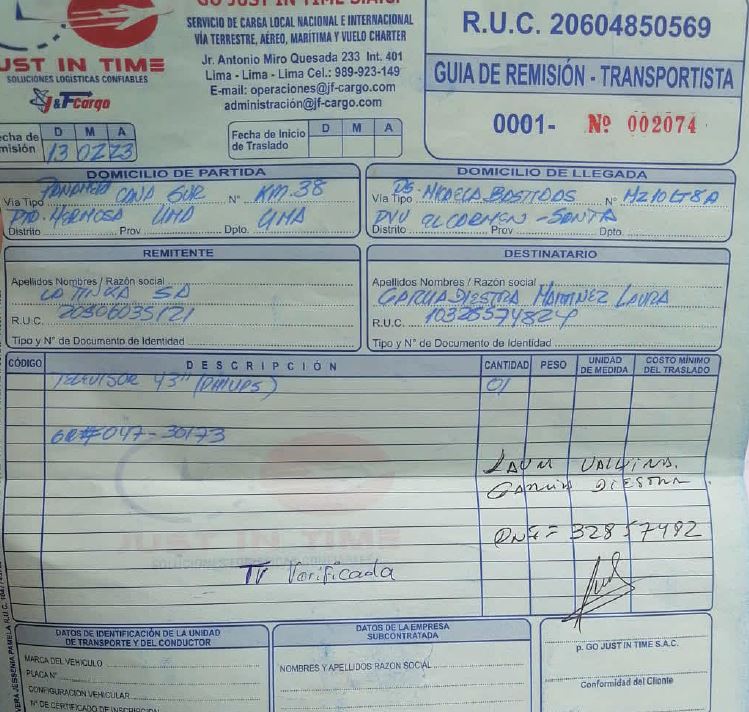 GO JUST IN TIME S.A.C.
JUST IN TIME
SOLUCIONES LOGÍSTICAS CONFIABLES
J&F Cargo
SERVICIO DE CARGA LOCAL NACIONAL E INTERNACIONAL
VÍA TERRESTRE, AÉREO, MARÍTIMA Y VUELO CHARTER
Jr. Antonio Miro Quesada 233 Int. 401
Lima - Lima - Lima Cel.: 989-923-149
E-mail: operaciones@jf-cargo.com
administración@jf-cargo.com
R.U.C. 20604850569
GUIA DE REMISIÓN - TRANSPORTISTA
0001- Nº 002074
Fecha de Emisión D M A
13 02 23
Fecha de Inicio de Traslado D M A
DOMICILIO DE PARTIDA
Vía Tipo PANAMERICANA SUR Nº KM. 38
PTO. HERMOSA LIMA LIMA
Distrito Prov. Dpto.
DOMICILIO DE LLEGADA
Vía Tipo MICAELA BASTIDAS Nº MZ 10 LT 8A
EL CARMEN - SANTA
Distrito Prov. Dpto.
REMITENTE
Apellidos Nombres / Razón social
LA TINKA SA
R.U.C. 20506035121
Tipo y Nº de Documento de Identidad
DESTINATARIO
Apellidos Nombres / Razón social
GARCIA DIESTRA MARTINEZ LAURA
R.U.C. 10328574824
Tipo y Nº de Documento de Identidad
CÓDIGO DESCRIPCIÓN CANTIDAD PESO UNIDAD DE MEDIDA COSTO MÍNIMO DEL TRASLADO
TELEVISOR 43" (PHILIPS) 01
GR# 047-30173
LAURA VALVINA.
GARCIA DIESTRA
DNI = 32857482
TV Verificada
JUST IN TIME
DATOS DE IDENTIFICACIÓN DE LA UNIDAD DE TRANSPORTE Y DEL CONDUCTOR
MARCA DEL VEHICULO
PLACA Nº
CONFIGURACIÓN VEHICULAR
Nº DE CERTIFICADO DE INSCRIPCIÓN
DATOS DE LA EMPRESA SUBCONTRATADA
NOMBRES Y APELLIDOS RAZON SOCIAL
p. GO JUST IN TIME S.A.C.
Conformidad del Cliente